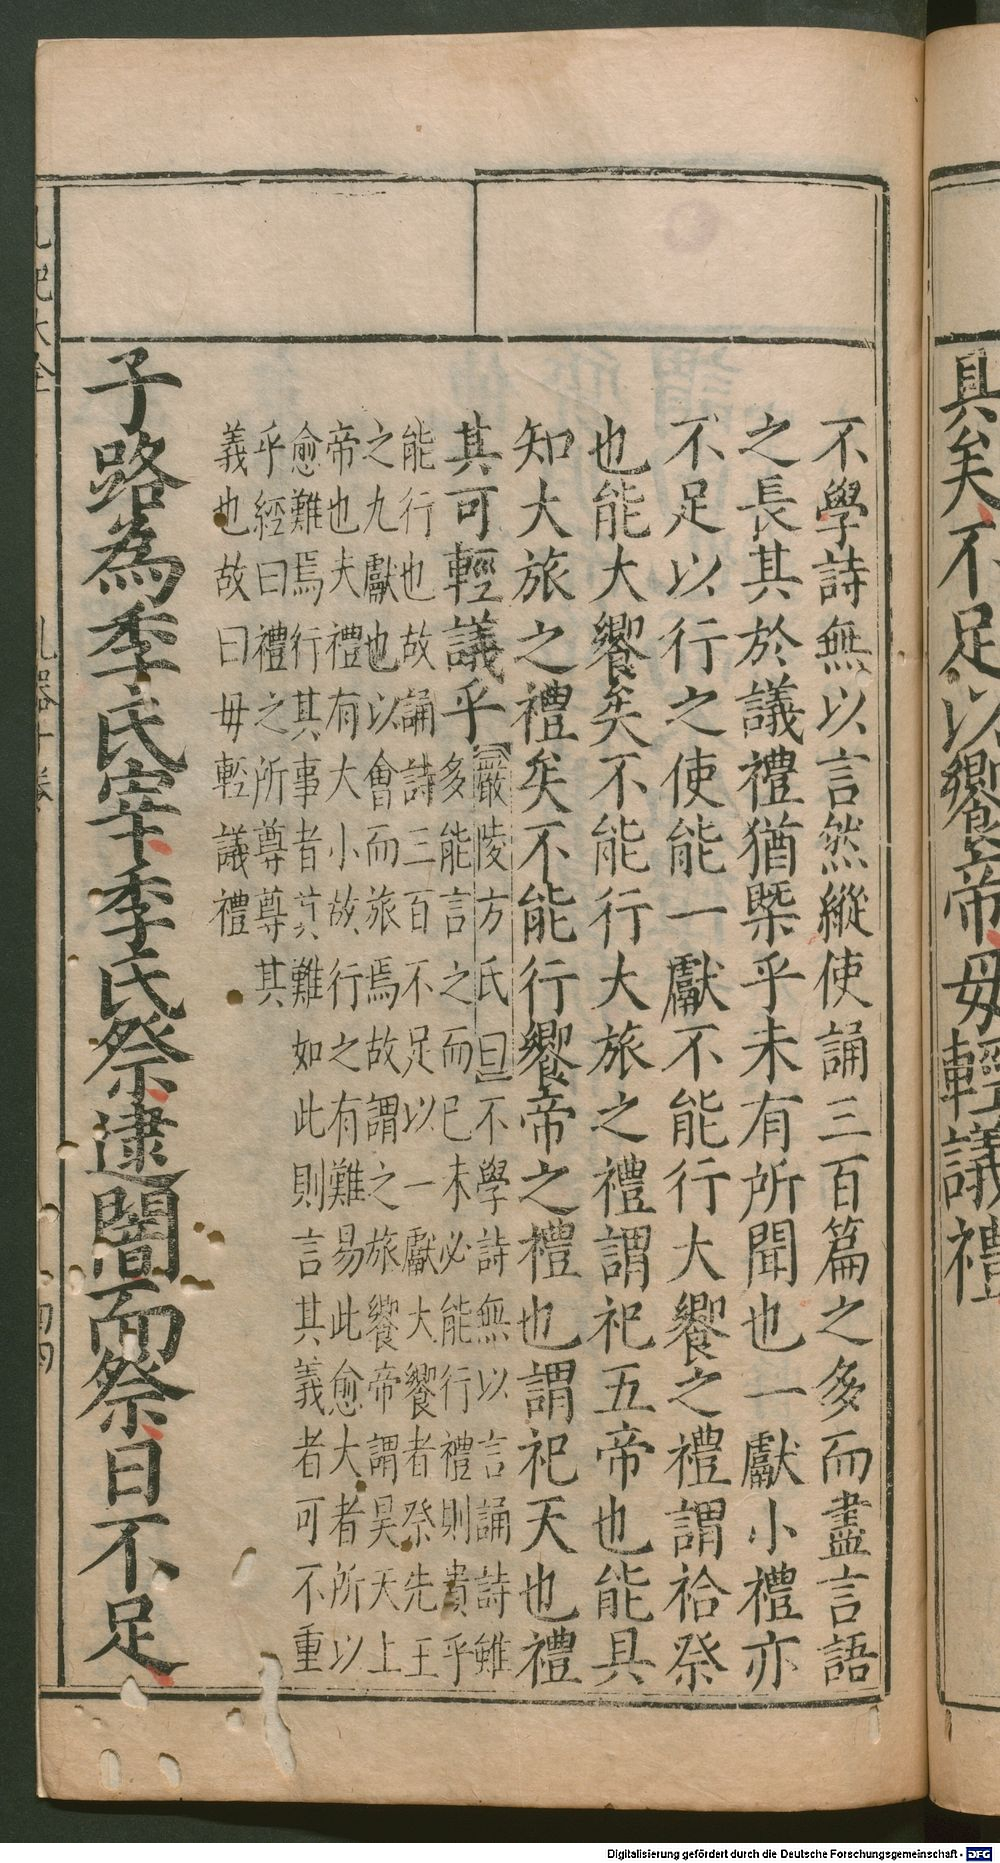 具矣不足以饗帝毋輕議禮
不學詩無以言然縱使誦三百篇之多而盡言語
之長其於議禮猶槩乎未有所聞也一獻小禮亦
不足以行之使能一獻不能行大饗之禮謂祫祭
也能大饗矣不能行大旅之禮謂祀五帝也能具
知大旅之禮矣不能行饗帝之禮也謂祀天也禮
其可輕議乎
嚴陵方氏曰不學詩無以言誦詩雖
多能言之而已未必能行禮則貴乎
能行也故誦詩三百不足以一獻大饗者祭先王
之九獻也以會而旅焉故謂之旅饗帝謂昊天上
帝也夫禮有大小故行之有難易此愈大者所以
愈難焉行其事者其難如此則言其義者可不重
乎經曰禮之所尊尊其
義也故曰毋輕議禮
子路為季氏宰季氏祭逮闇而祭日不足
Digitalisierung gefördert durch die Deutsche Forschungsgemeinschaft - DFG